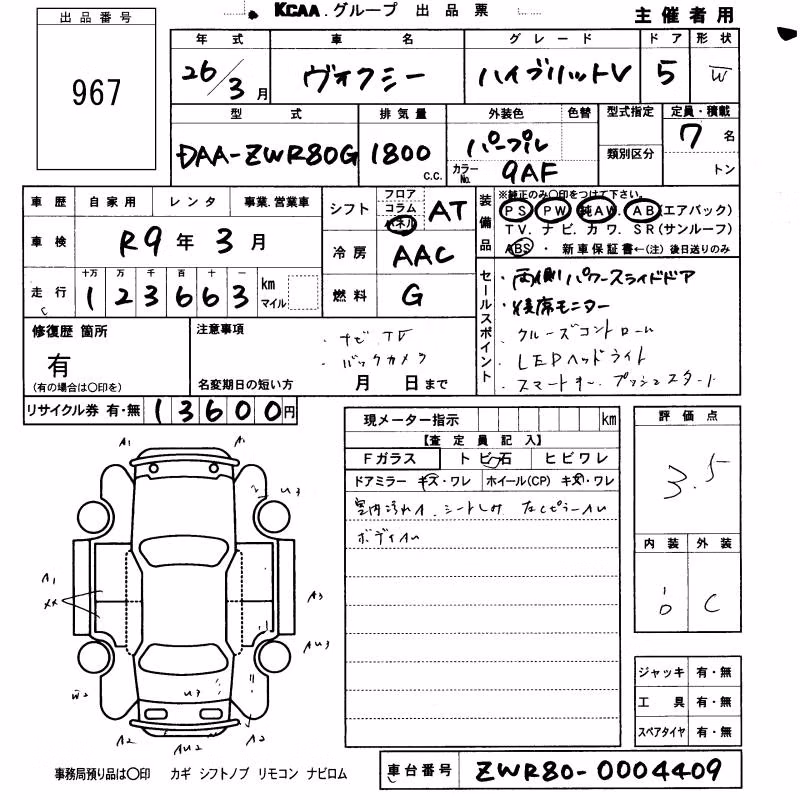 KCAA.グループ 出品票
主催者用
出品番号
967
年式 車名 グレード ドア 形状
26/3月 ヴォクシー ハイブリットV 5 W
型式 排気量 外装色 色替 型式指定 定員・積載
DAA-ZWR80G 1800 c.c. パープル 類別区分 7名
カラーNo. 9AF トン
車歴 自家用 レンタ 事業.営業車
車検 R9年3月
走行 十万 万 千 百 十 一 km マイル
1 2 3 6 6 3
シフト フロア コラム パネル AT
冷房 AAC
燃料 G
装備品
※純正のみ○印をつけて下さい。
PS PW 純AW. AB (エアバック)
TV. ナビ. カワ. SR (サンルーフ)
ABS ・ 新車保証書←(注) 後日送りのみ
セールスポイント
・両側パワースライドドア
・後席モニター
・クルーズコントロール
・LEDヘッドライト
・スマートキー. プッシュスタート
修復歴 箇所
有
(有の場合は○印を)
注意事項
・ナビ.TV
・バックカメラ
名変期日の短い方 月 日まで
リサイクル券 有・無 1 3 6 0 0 円
現メーター指示 km
【査定員記入】
Fガラス トビ石 ヒビワレ
ドアミラー キズ・ワレ ホイール(CP) キズ・ワレ
室内汚れA. シートしみ
評価点
3.5
内装 外装
C
A1 A1
U3
A1
XX
A3
AU3
W2 U3
A2 AU2 A2
ジャッキ 有・無
工具 有・無
スペアタイヤ 有・無
事務局預り品は○印 カギ シフトノブ リモコン ナビロム
車台番号 ZWR80-0004409